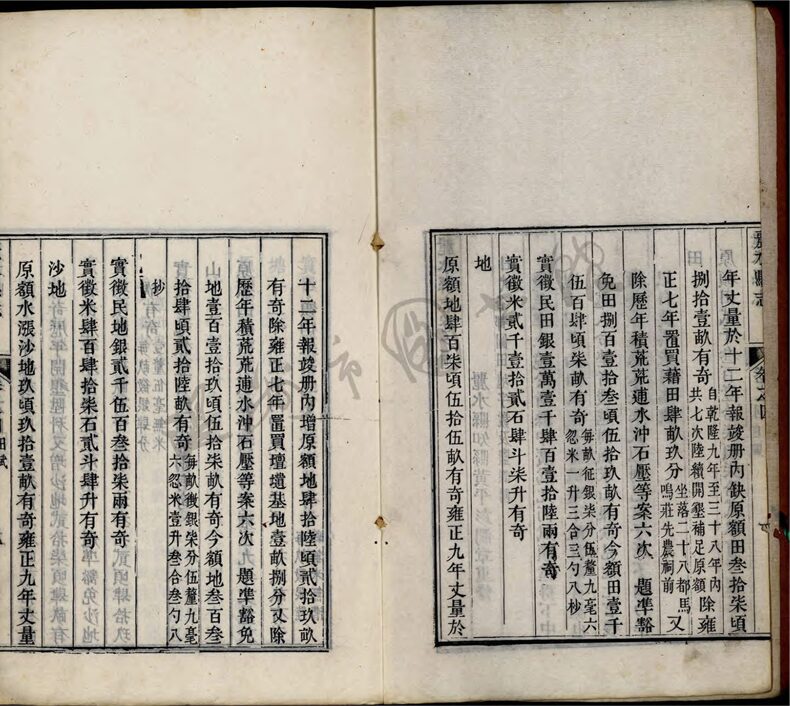 麗水縣志
年丈量於十二年報竣册內缺原額田叁拾柒頃
捌拾壹畝有奇自乾隆九年至三十八年內共七次陸續開墾補足原額除雍
正七年置買藉田肆畝玖分坐落二十八都馬鳴莊先農祠前又
除歷年積荒荒逋水沖石壓等案六次題準豁
免田捌百壹拾叁頃伍拾玖畝有奇今額田壹千
伍百肆頃柒畝有奇每畝征銀柒分伍釐九毫六忽米一升三合三勺八杪
實徵民田銀壹萬壹千肆百壹拾陸兩有奇
實徵米貳千壹拾貳石肆斗柒升有奇
地
原額地肆百柒頃伍拾伍畝有奇雍正九年丈量於
十二年報竣册內增原額地肆拾陸頃貳拾玖畝
有奇除雍正七年置買壇壝基地壹畝捌分又除
歷年積荒荒逋水沖石壓等案六次九題準豁免
地壹百壹拾玖頃伍拾柒畝有奇今額地叁百叁
拾肆頃貳拾陸畝有奇每畝徵銀柒分伍釐九毫六忽米壹升叁合叁勺八
抄
實徵民地銀貳千伍百叁拾柒兩有奇
實徵米肆百肆拾柒石貳斗肆升有奇
沙地
原額水漲沙地玖頃玖拾壹畝有奇雍正九年丈量